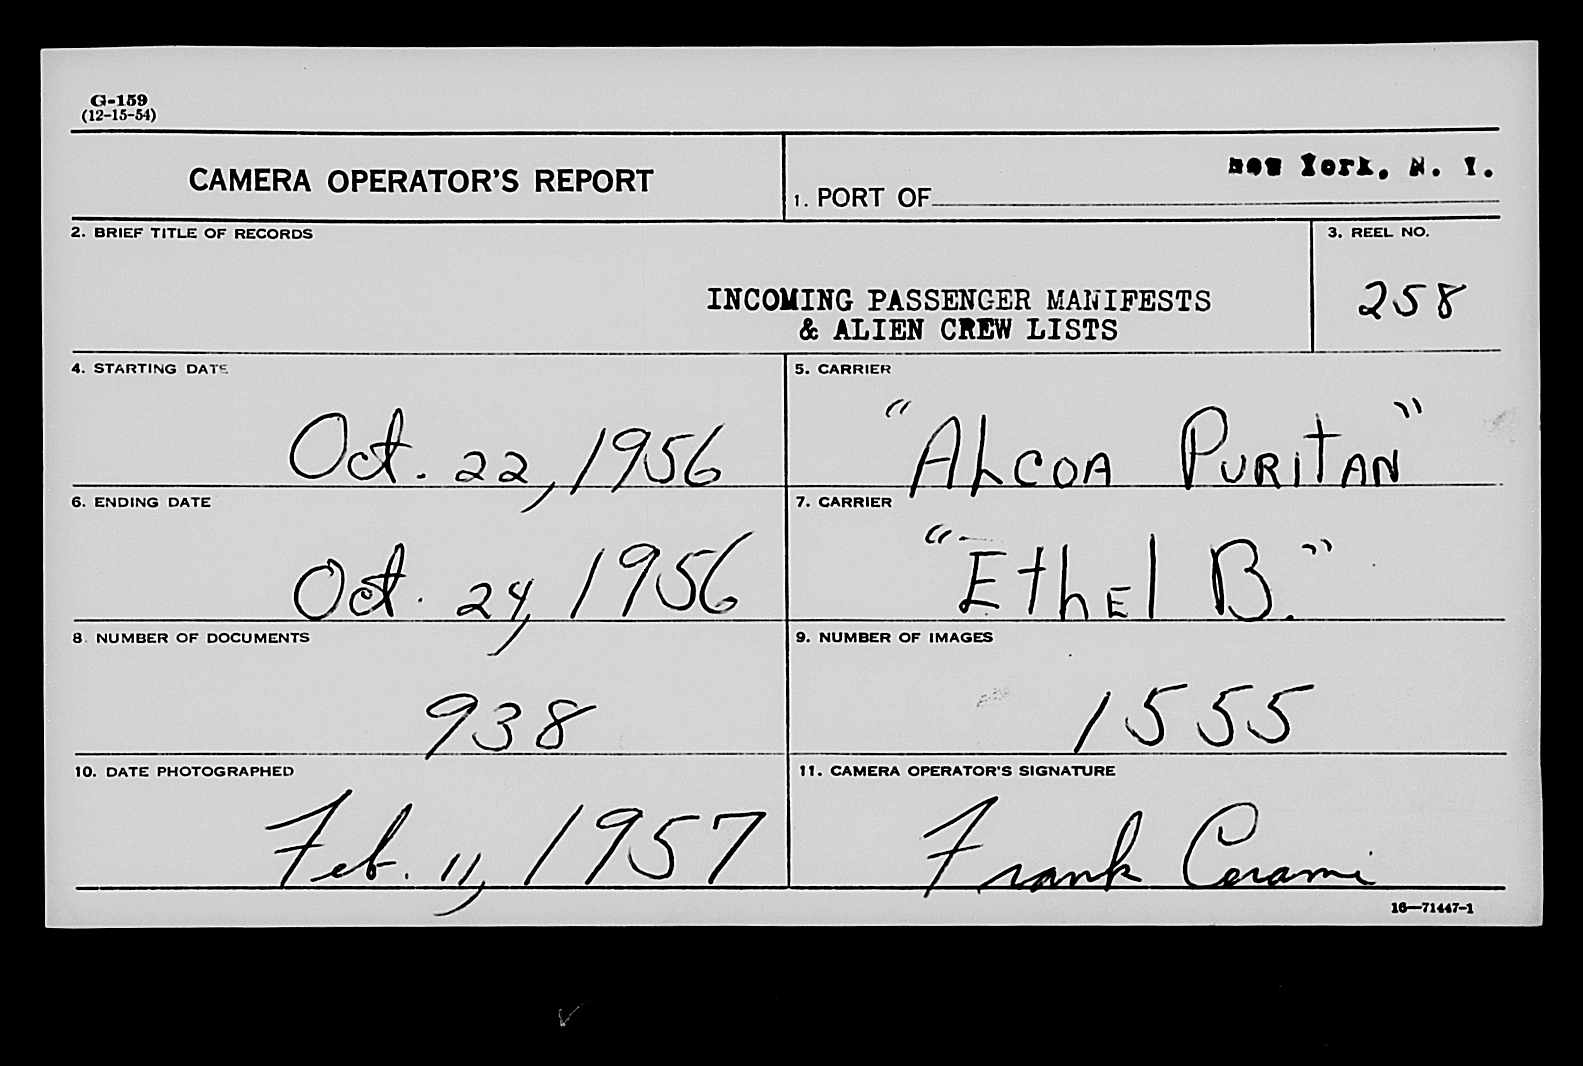 G-159
(12-15-54)
CAMERA OPERATOR'S REPORT
1. PORT OF New York, N. Y.
2. BRIEF TITLE OF RECORDS
INCOMING PASSENGER MANIFESTS
& ALIEN CREW LISTS
3. REEL NO.
258
4. STARTING DATE
Oct. 22, 1956
5. CARRIER
"ALCOA PURITAN"
6. ENDING DATE
Oct. 24, 1956
7. CARRIER
"EthEl B."
8. NUMBER OF DOCUMENTS
938
9. NUMBER OF IMAGES
1555
10. DATE PHOTOGRAPHED
Feb. 11, 1957
11. CAMERA OPERATOR'S SIGNATURE
Frank Cerami
16—71447-1